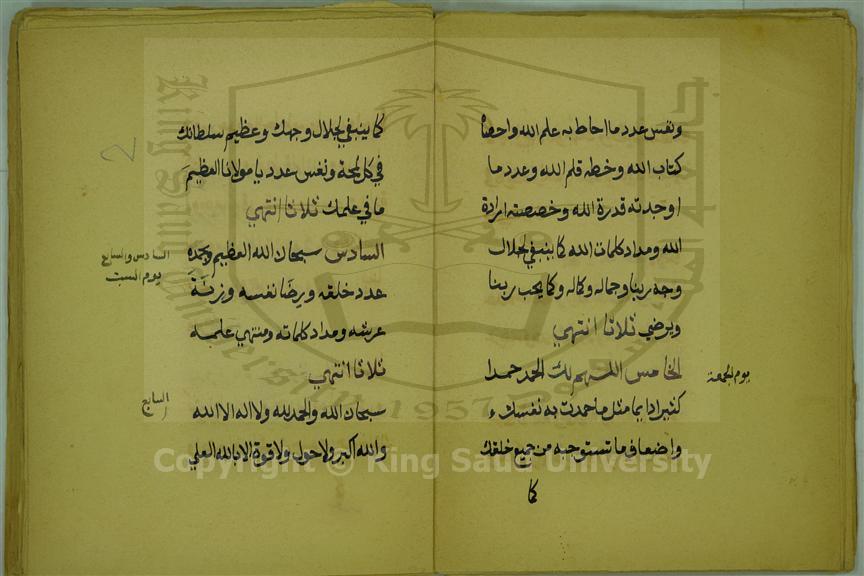 ونفس عدد ما احاط به علم الله واحصاه
كتاب الله وخطه قلم الله وعدد ما
اوجدته قدرة الله وخصصته ارادة
الله ومداد كلمات الله كما ينبغي لجلال
وجه ربنا وجماله وكماله وكما يحب ربنا
ويرضي ثلاثا انتهي
الخامس اللهم لك الحمد حمدا
كثيرا دايما مثل ما حمدت به نفسك
واضعاف ما تستوجبه من جميع خلقك
كما
يوم الجمعة
كما ينبغي لجلال وجهك وعظيم سلطانك
في كل لمحة ونفس عدد يا مولانا العظيم
ما في علمك ثلاثا انتهي
السادس سبحان الله العظيم وبحمده
عدد خلقه ورضا نفسه وزنة
عرشه ومداد كلماته ومنتهي علمه
ثلاثا انتهي
سبحان الله والحمد لله ولا اله الا الله
والله اكبر ولا حول ولا قوة الا بالله العلي
السادس والسابع
يوم السبت
السابع
King Saud University
1957
Copyright © King Saud University